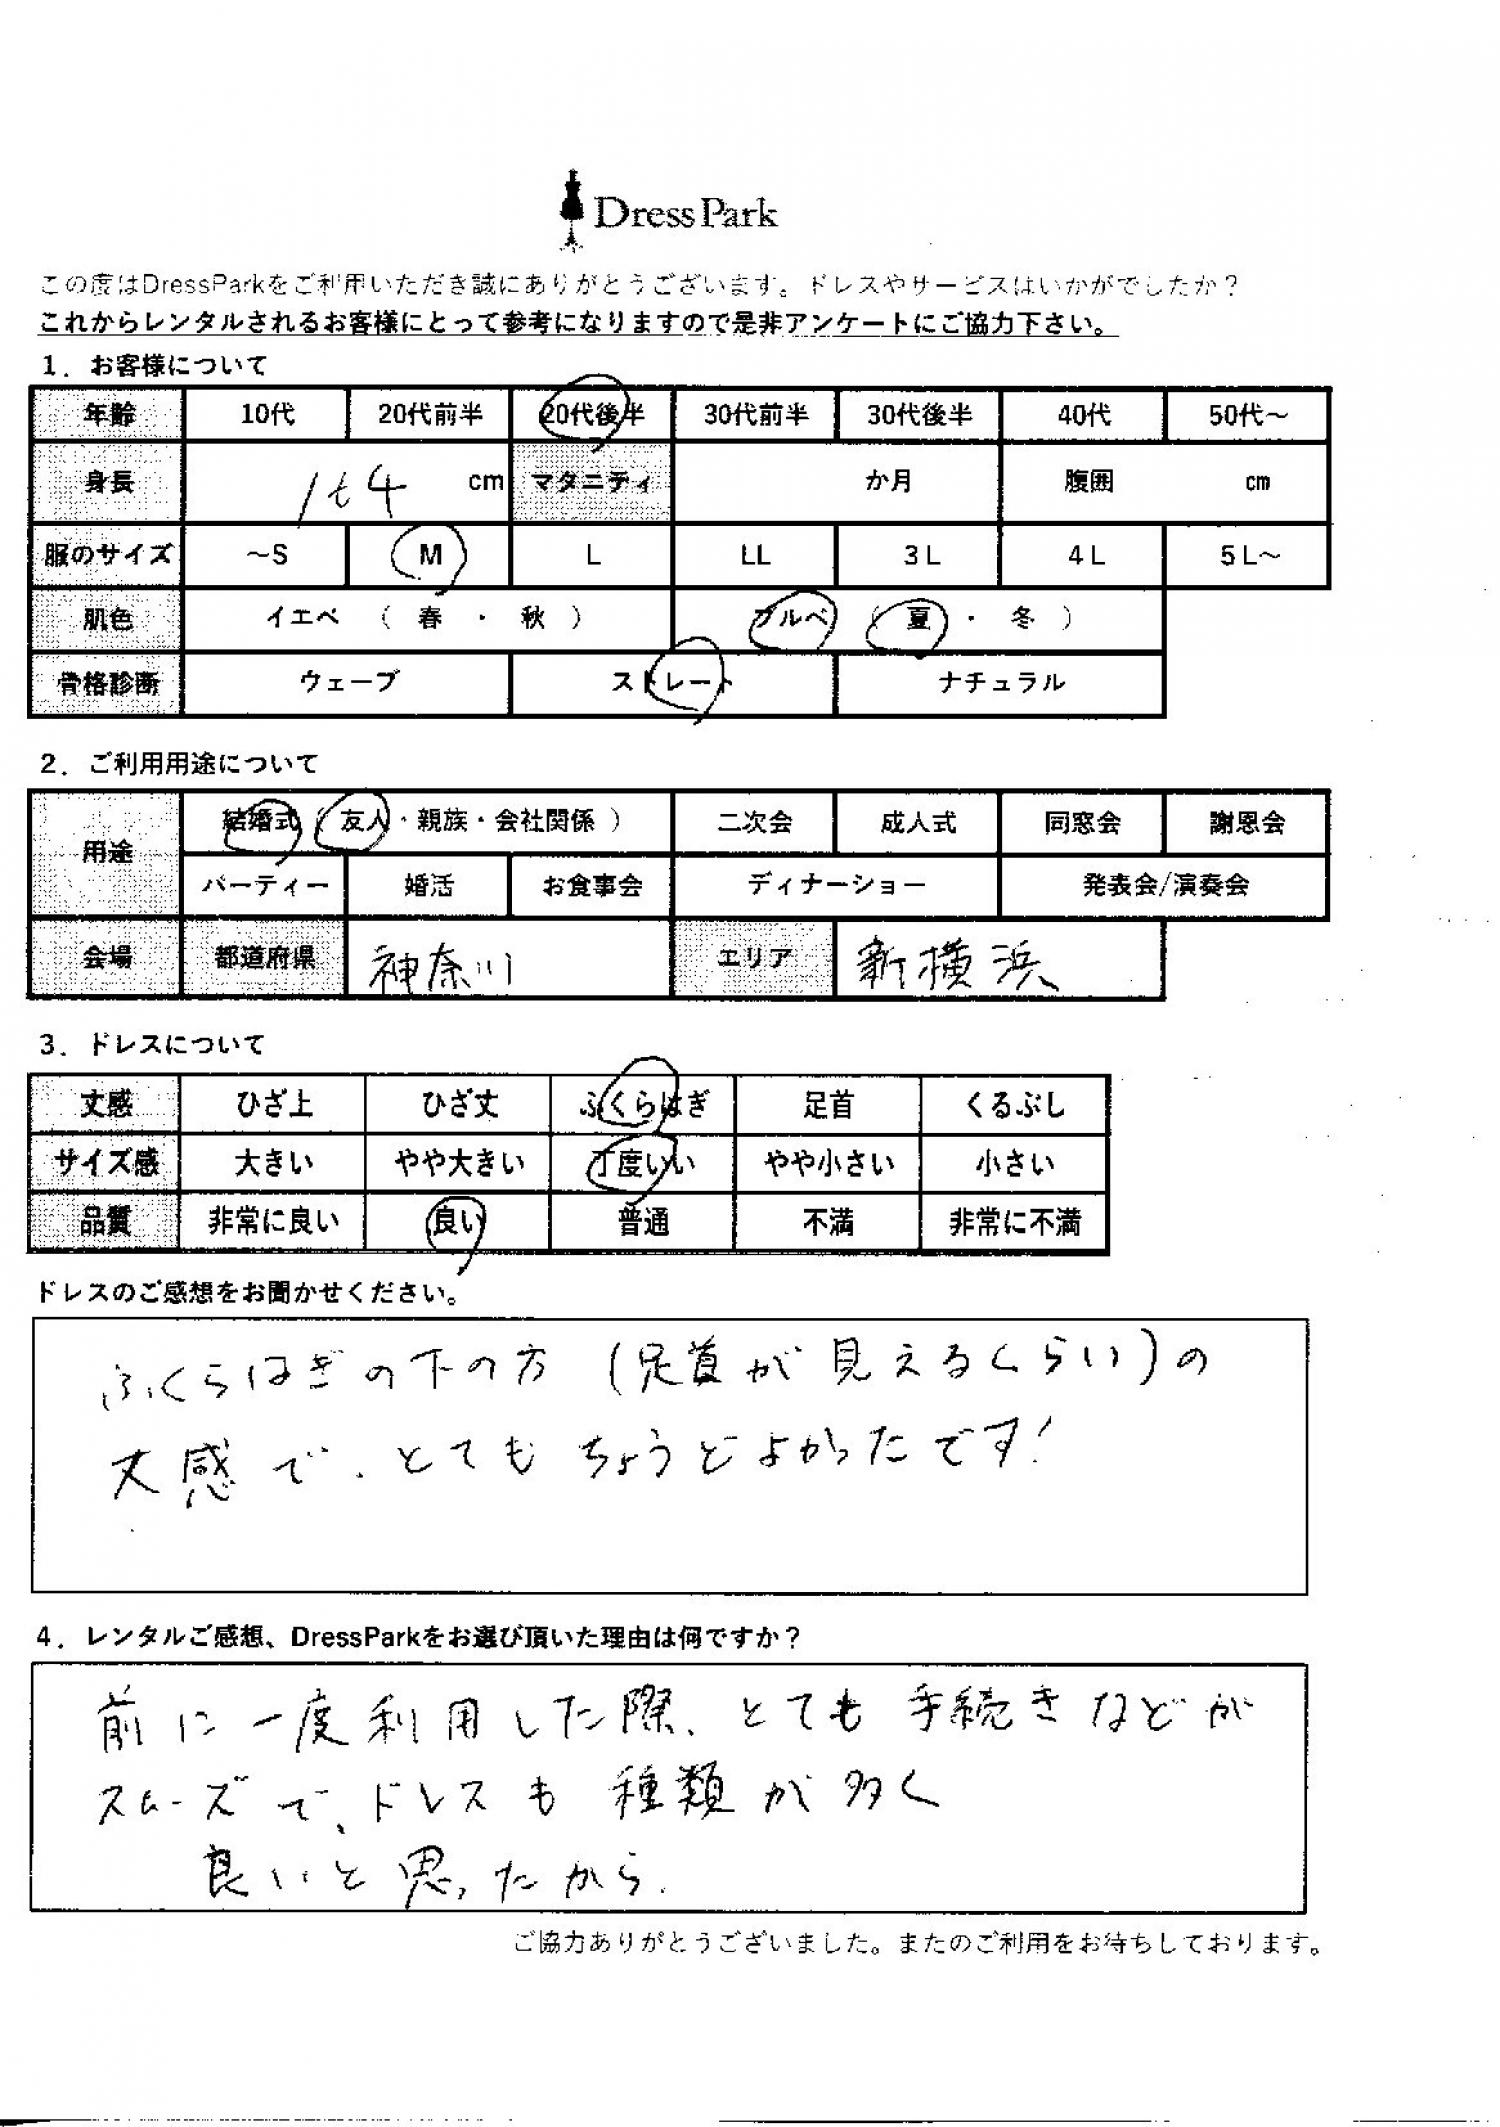 DressPark
この度はDressParkをご利用いただき誠にありがとうございます。ドレスやサービスはいかがでしたか？
これからレンタルされるお客様にとって参考になりますので是非アンケートにご協力下さい。
1．お客様について
年齢 10代 20代前半 20代後半 30代前半 30代後半 40代 50代～
身長 cm マタニティ か月 腹囲 cm
服のサイズ ～S M L LL 3L 4L 5L～
肌色 イエベ （ 春 ・ 秋 ） ブルベ （ 夏 ・ 冬 ）
骨格診断 ウェーブ ストレート ナチュラル
2．ご利用用途について
用途 結婚式（ 友人・親族・会社関係 ） 二次会 成人式 同窓会 謝恩会
パーティー 婚活 お食事会 ディナーショー 発表会/演奏会
会場 都道府県 神奈川 エリア 新横浜
3．ドレスについて
丈感 ひざ上 ひざ丈 ふくらはぎ 足首 くるぶし
サイズ感 大きい やや大きい 丁度いい やや小さい 小さい
品質 非常に良い 良い 普通 不満 非常に不満
ドレスのご感想をお聞かせください。
ふくらはぎの下の方（足首が見えるくらい）の
丈感で、とてもちょうどよかったです！
4．レンタルご感想、DressParkをお選び頂いた理由は何ですか？
前に一度利用した際、とても手続きなどが
スムーズで、ドレスも種類が多く
良いと思ったから.
ご協力ありがとうございました。またのご利用をお待ちしております。